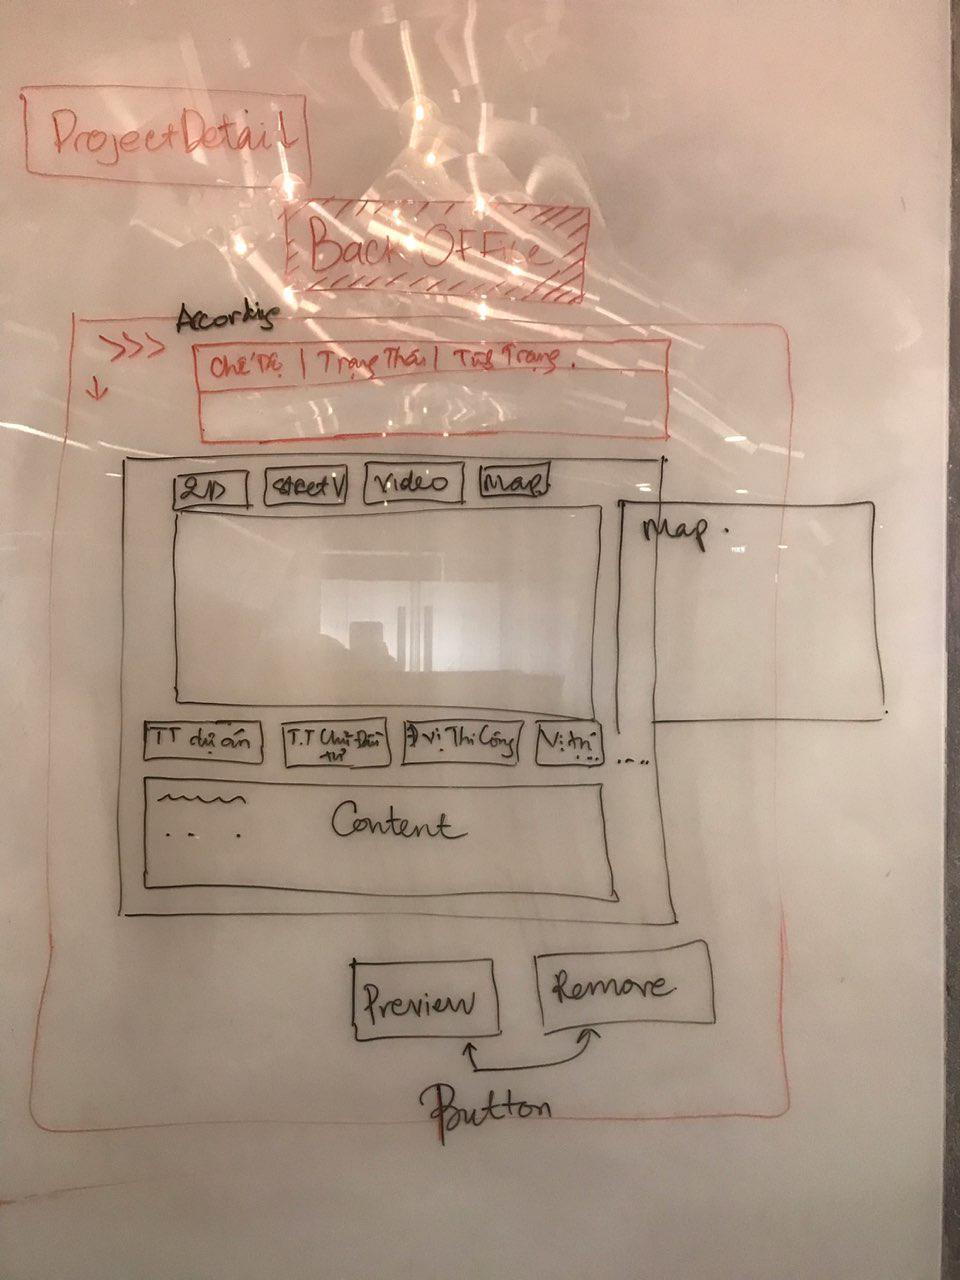 ProjectDetail
Back OFFice
>>> 
Chế Độ | Trạng Thái | Tình Trạng.
2D
StreetV
Video
Map
Map.
TT dự án
T.T Chủ Đầu tư
Đvị Thi Công
Vị trí ...
....
Content
Preview
Remove
Button